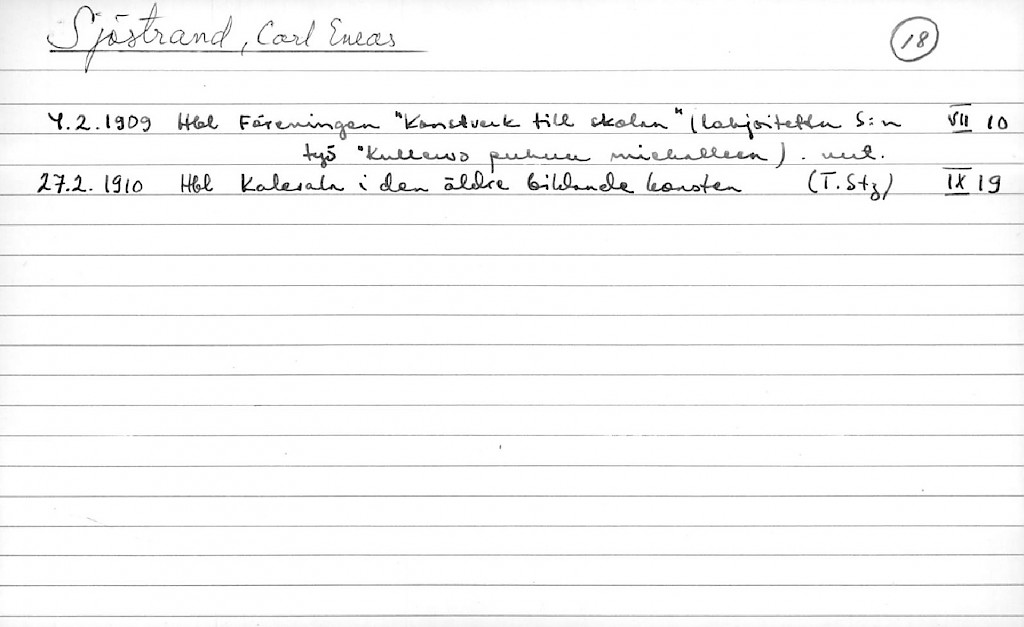 Sjöstrand, Carl Eneas 18
4.2.1909 Hbl Föreningen "Konstverk till skolan" (lahjoitettu S:n VII 10
työ "Kullervo puhuu miekalleen). uut.
27.2.1910 Hbl Kalevala i den äldre bildande konsten (T. Stz) IX 19